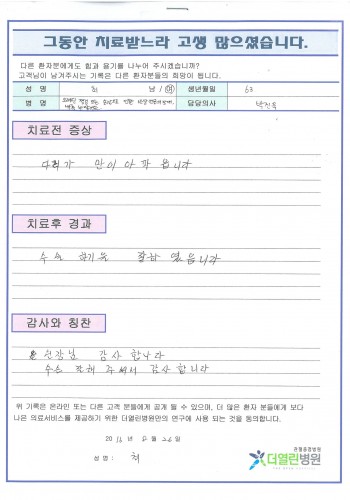 그동안 치료받느라 고생 많으셨습니다.
다른 환자분에게도 힘과 용기를 나누어 주시겠습니까?
고객님이 남겨주시는 기록은 다른 환자분들의 희망이 됩니다.
성 명 최 남 / 여 생년월일 63.
병 명 담당의사 박진욱
치료전 증상
다리가 만이 아파 읍니다
치료후 경과
수술 하기를 잘하 였읍니다
감사와 칭찬
원장님 감사 합니다
수술 잘해 주셔서 감사 합니다
위 기록은 온라인 또는 다른 고객 분들에게 공개 될 수 있으며, 더 많은 환자 분들에게 보다
나은 의료서비스를 제공하기 위한 더열린병원만의 연구에 사용 되는 것을 동의합니다.
년 월 26일
성 명 : 최
관절중점병원
더열린병원